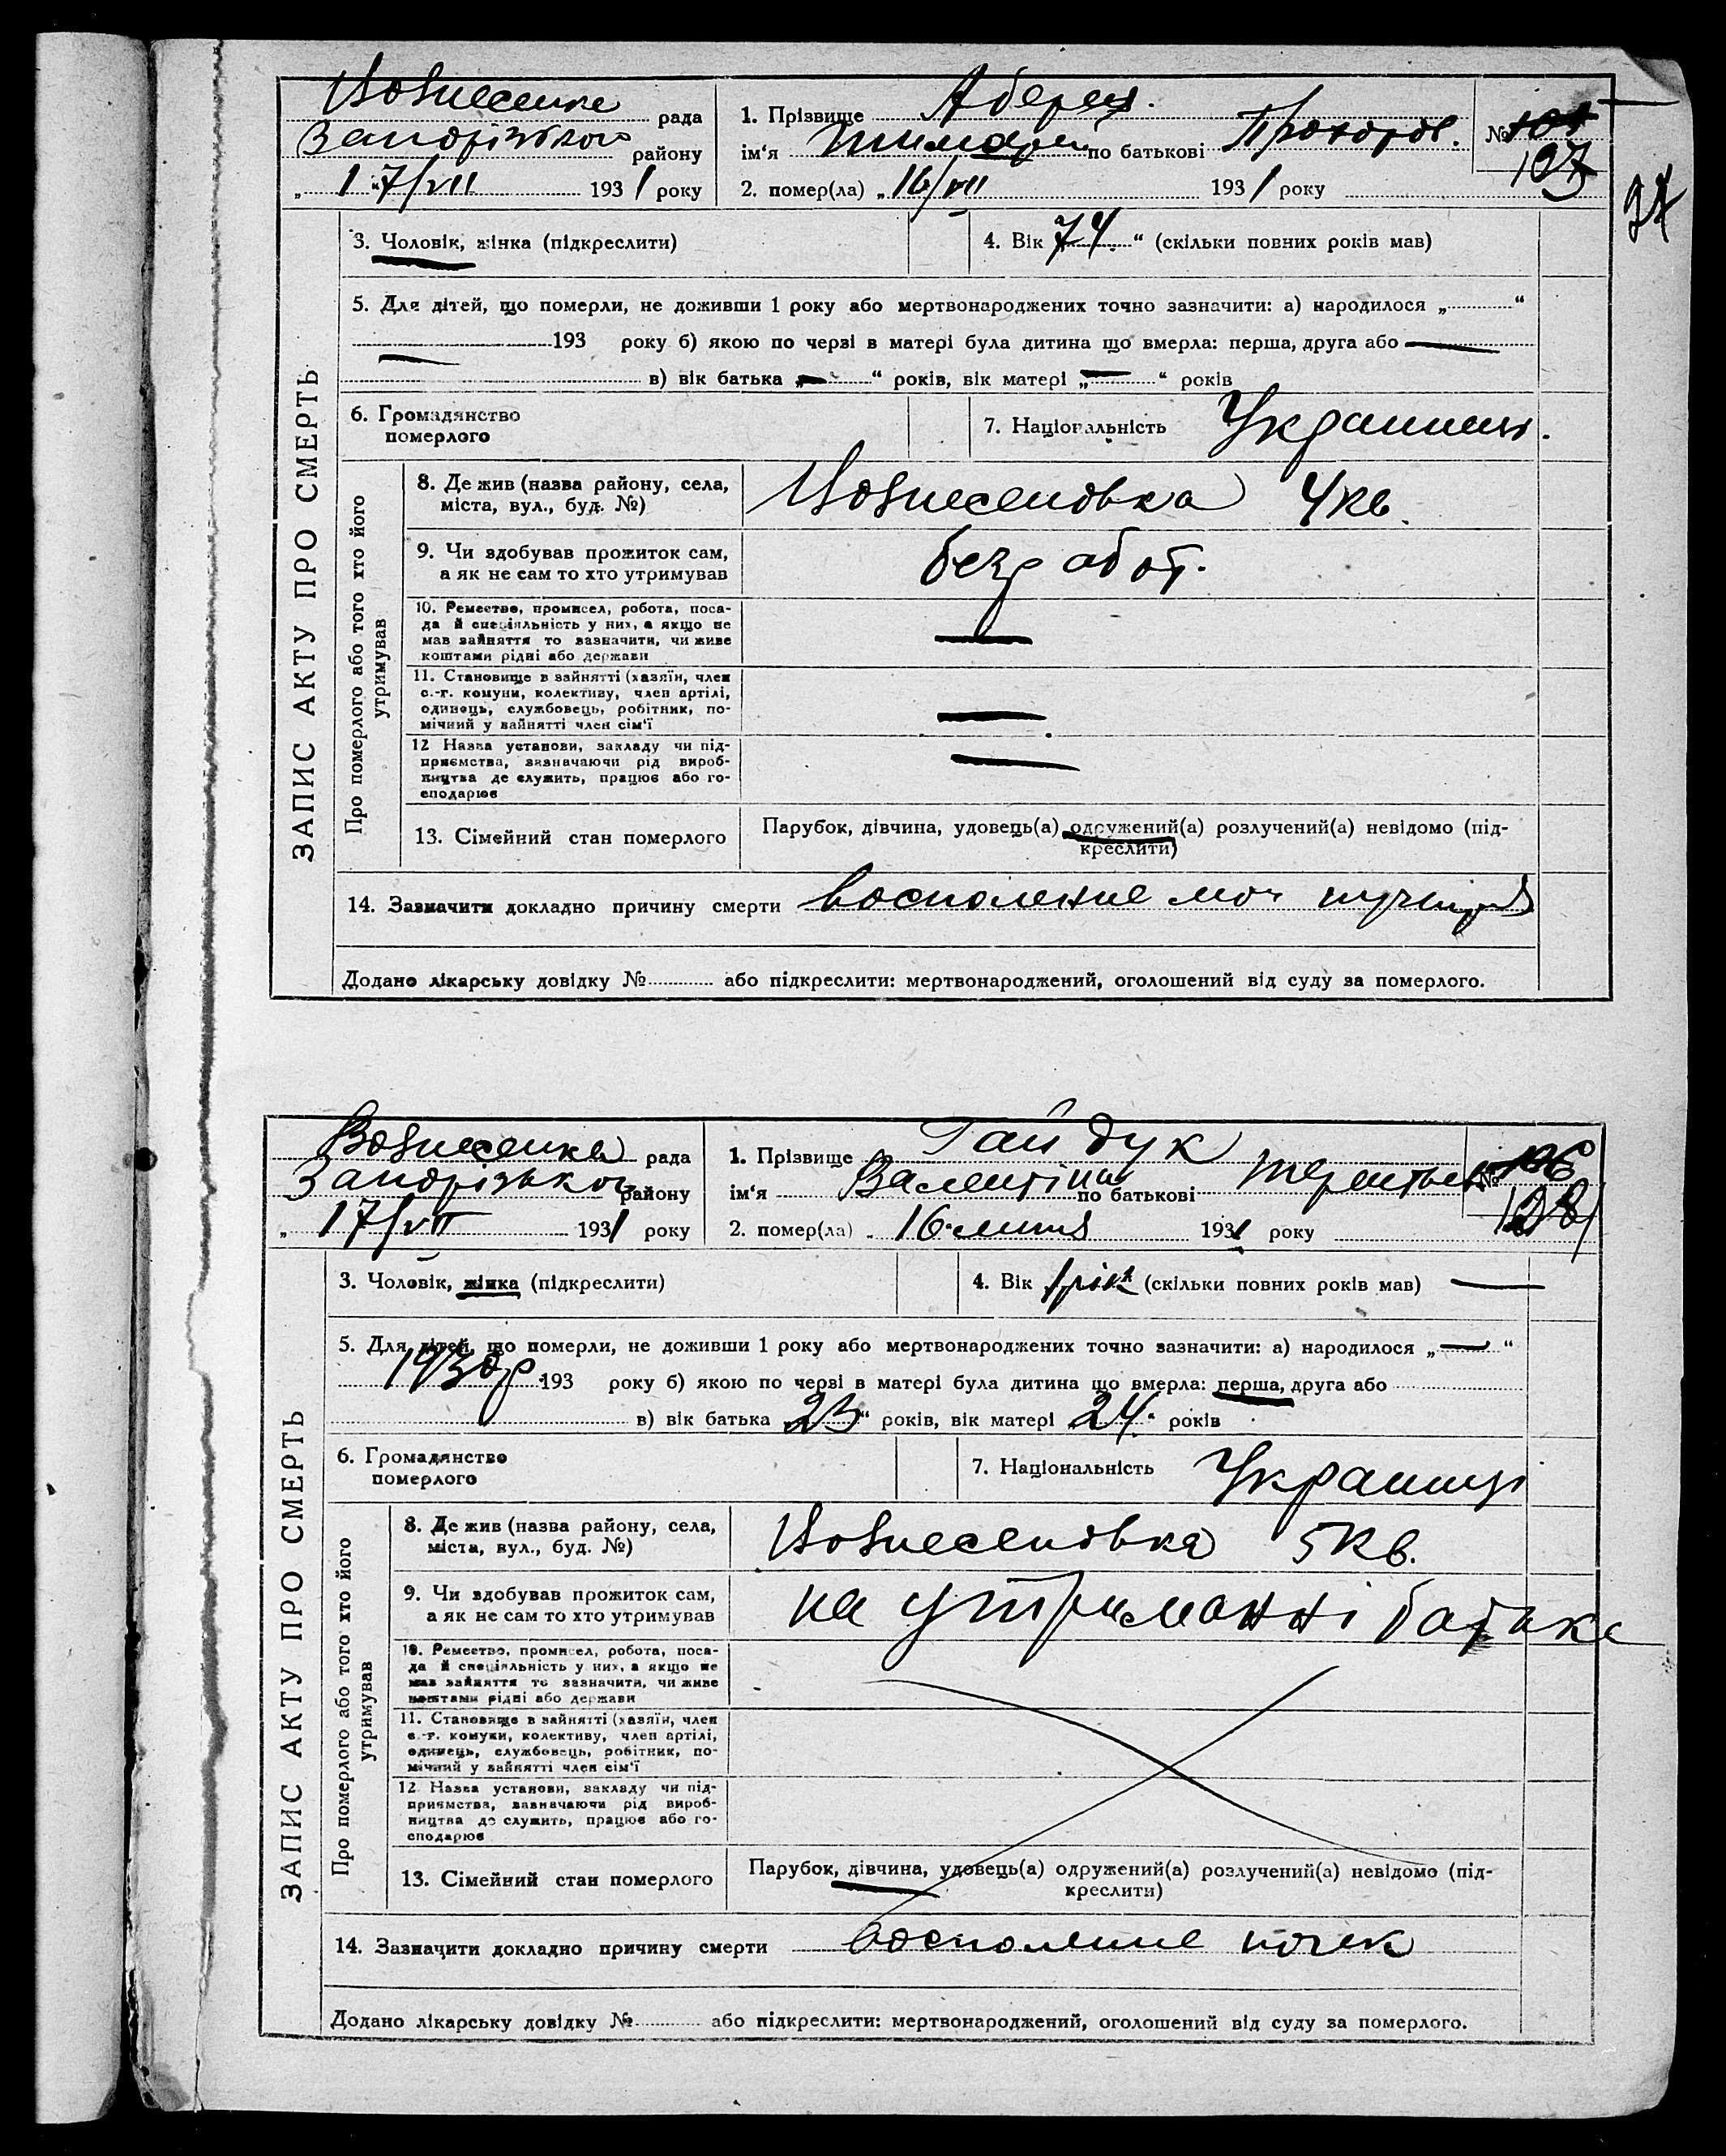 Вознесенка рада
Запорізького району
„ 17/VII 1931 року
1. Прізвище
ім‘я по батькові Прохоров.
2. помер(ла) „ 16/VII 1931 року
№
107
ЗАПИС АКТУ ПРО СМЕРТЬ
3. Чоловік, жінка (підкреслити)
4. Вік „74“ (скільки повних років мав)
5. Для дітей, що померли, не доживши 1 року або мертвонароджених точно зазначити: а) народилося „ “
193 року б) якою по черзі в матері була дитина що вмерла: перша, друга або
в) вік батька „ “ років, вік матері „ “ років
6. Громадянство
померлого
7. Національність Украинец.
Про померлого або того хто його
утримував
8. Де жив (назва району, села,
міста, вул., буд. №)
Вознесеновка 4 кв.
9. Чи здобував прожиток сам,
а як не сам то хто утримував
безработ.
10. Ремество, промисел, робота, поса-
да й спеціяльність у них, а якщо не
мав зайняття то зазначити, чи живе
коштами рідні або держави
11. Становище в зайнятті (хазяїн, член
с.-г. комуни, колективу, член артілі,
одинець, службовець, робітник, по-
мічний у зайнятті член сім‘ї
12 Назва установи, закладу чи під-
приємства, зазначаючи рід вироб-
ництва де служить, працює або го-
сподарює
13. Сімейний стан померлого
Парубок, дівчина, удовець(а) одружений(а) розлучений(а) невідомо (під-
креслити)
14. Зазначити докладно причину смерти воспаление моч пузыря
Додано лікарську довідку № або підкреслити: мертвонароджений, оголошений від суду за померлого.
Вознесенка рада
Запорізького району
„ 17/VII 1931 року
1. Прізвище Гайдук
ім‘я Валентіна по батькові
2. помер(ла) „ 16 липня 1931 року
№ 106
108
ЗАПИС АКТУ ПРО СМЕРТЬ
3. Чоловік, жінка (підкреслити)
4. Вік 1 рік (скільки повних років мав)
5. Для дітей, що померли, не доживши 1 року або мертвонароджених точно зазначити: а) народилося „ “
1930 р 193 року б) якою по черзі в матері була дитина що вмерла: перша, друга або
в) вік батька „23“ років, вік матері 24 років
6. Громадянство
померлого
7. Національність Украинці
Про померлого або того хто його
утримував
8. Де жив (назва району, села,
міста, вул., буд. №)
Вознесеновка 5 кв.
9. Чи здобував прожиток сам,
а як не сам то хто утримував
на утриманні батька
10. Ремество, промисел, робота, поса-
да й спеціяльність у них, а якщо не
мав зайняття то зазначити, чи живе
коштами рідні або держави
11. Становище в зайнятті (хазяїн, член
с.-г. комуни, колективу, член артілі,
одинець, службовець, робітник, по-
мічний у зайнятті член сім‘ї
12 Назва установи, закладу чи під-
приємства, зазначаючи рід вироб-
ництва де служить, працює або го-
сподарює
13. Сімейний стан померлого
Парубок, дівчина, удовець(а) одружений(а) розлучений(а) невідомо (під-
креслити)
14. Зазначити докладно причину смерти воспаление почек
Додано лікарську довідку № або підкреслити: мертвонароджений, оголошений від суду за померлого.